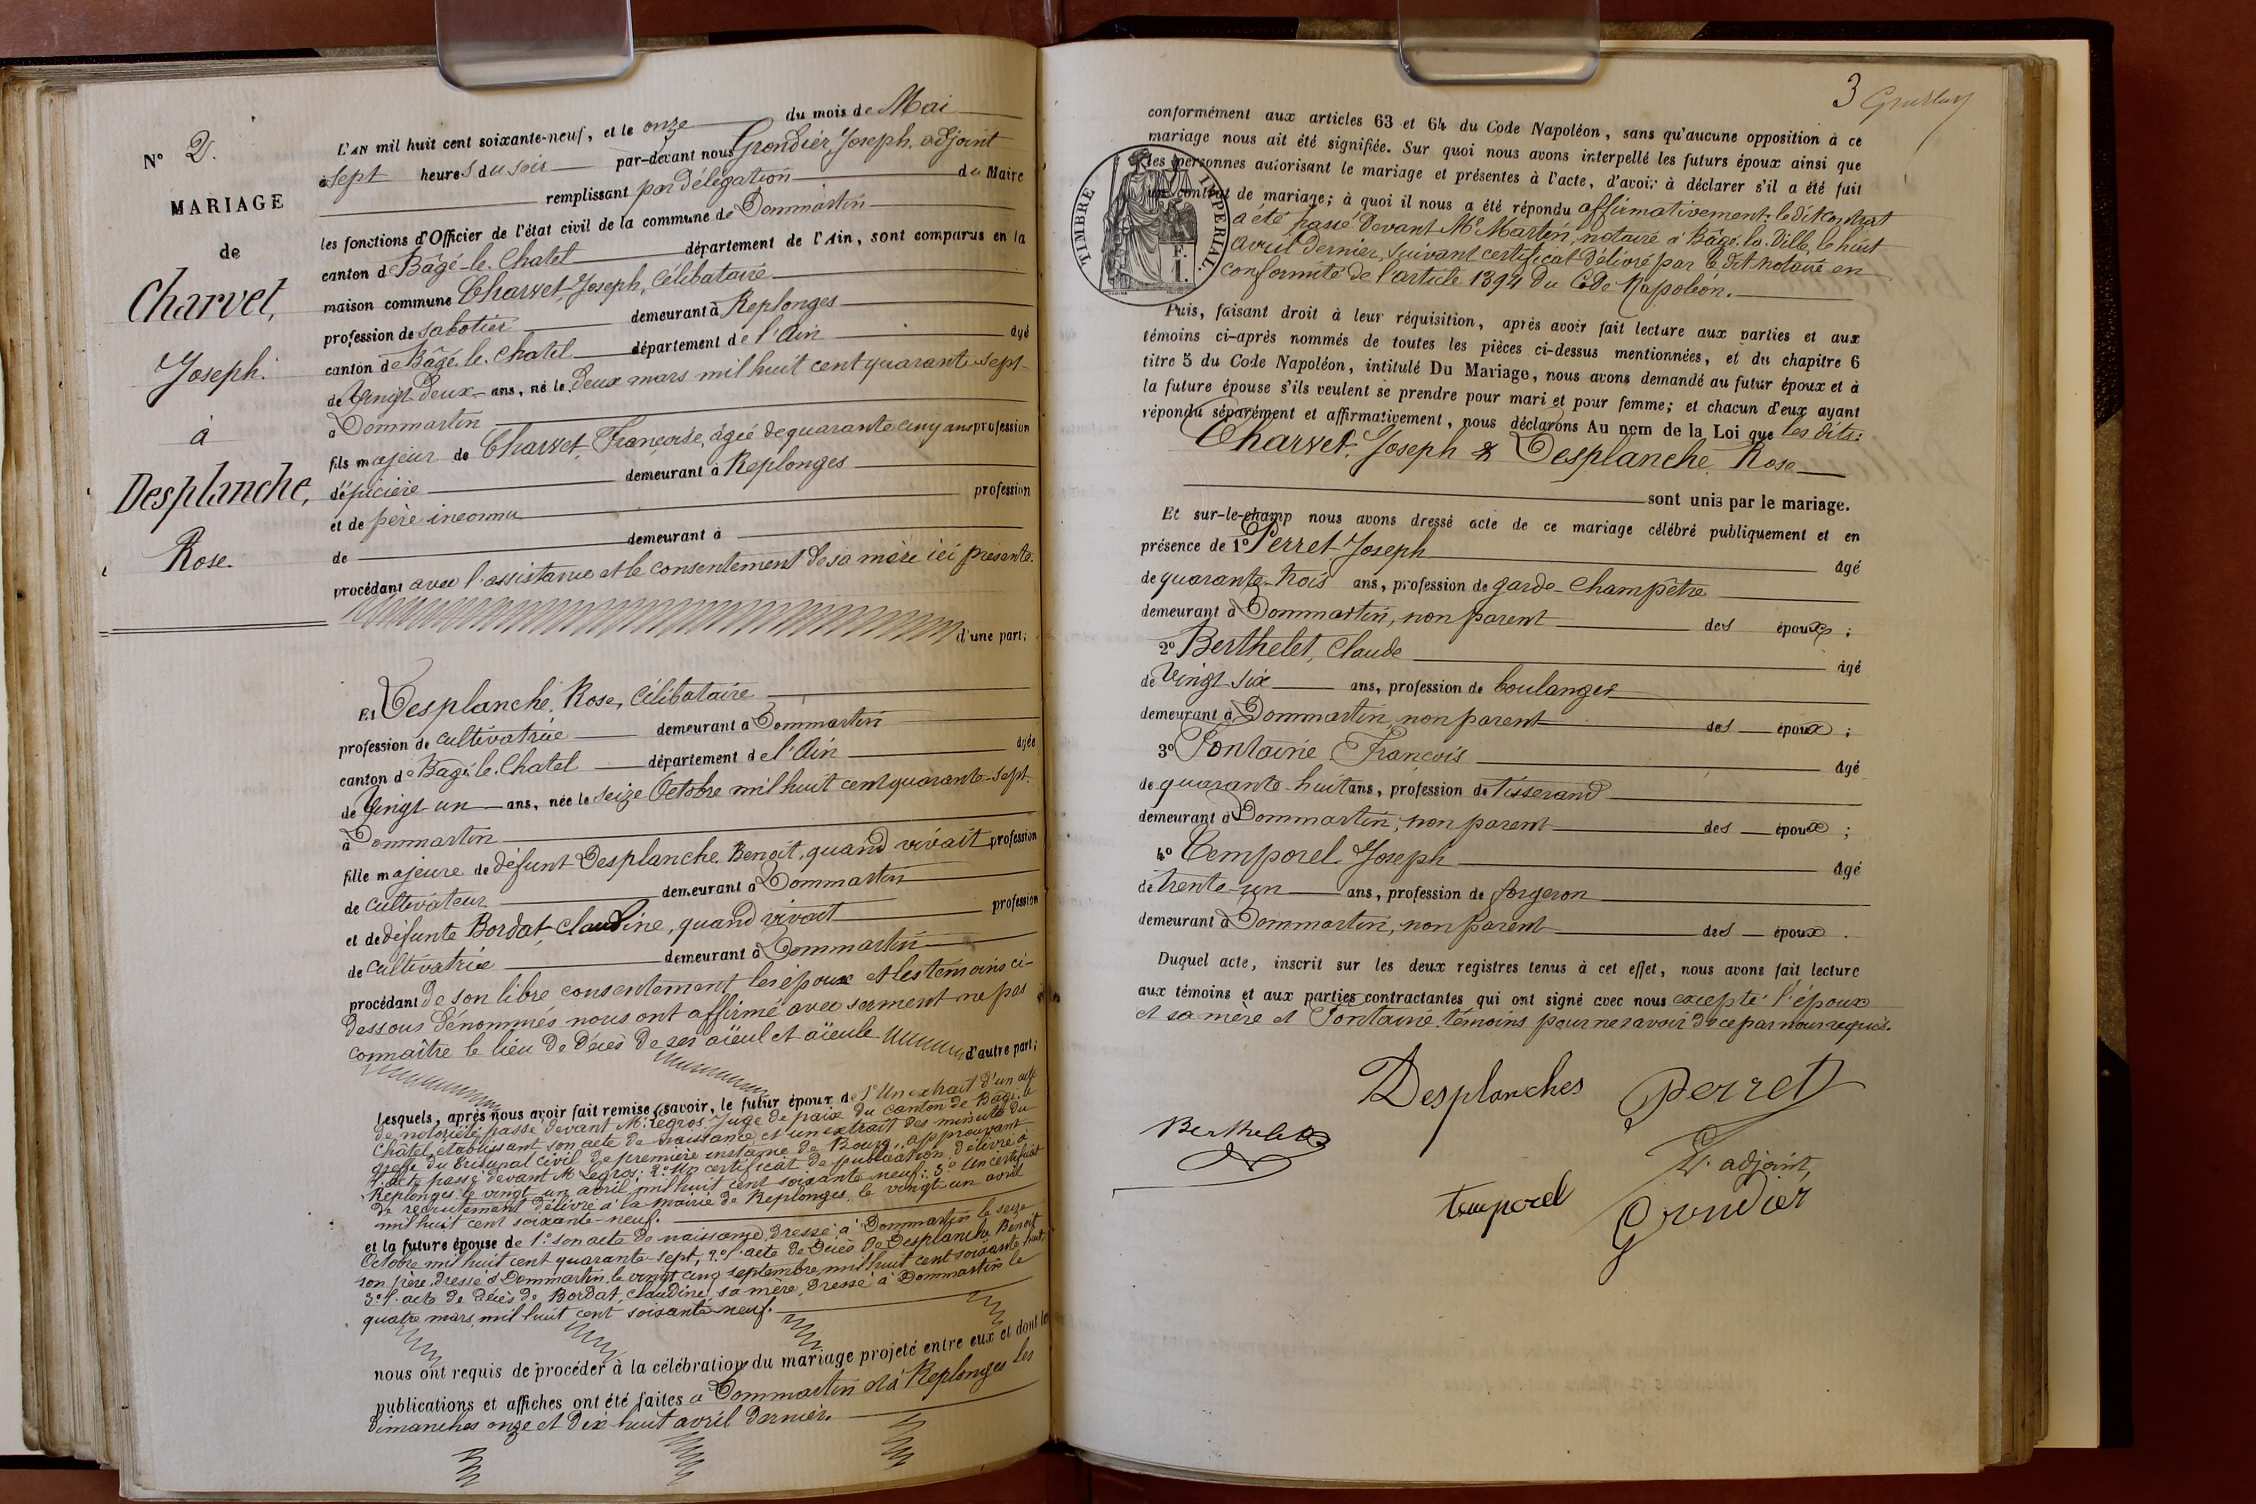 N° 2.
MARIAGE
de
Charvet,
Joseph.
à
Desplanche,
Rose.
L'AN mil huit cent soixante-neuf, et le onze du mois de Mai
à sept heures du soir par-devant nous Grondier Joseph, adjoint
du Maire
remplissant par délégation
les fonctions d'Officier de l'état civil de la commune de Dommartin
canton de Bâgé-le-Chatel département de l'Ain, sont comparus en la
maison commune Charvet, Joseph, célibataire
profession de sabotier demeurant à Replonges
canton de Bâgé-le-Chatel département de l'Ain âgé
de Vingt deux ans, né le deux mars mil huit cent quarante-sept
à Dommartin
fils majeur de Charvet, Françoise, âgée de quarante cinq ans profession
d'épicière demeurant à Replonges
et de père inconnu profession
de demeurant à
procédant avec l'assistance et le consentement de sa mère ici présente.
d'une part;
Et Desplanche, Rose, célibataire
profession de cultivatrice demeurant à Dommartin
canton de Bâgé-le-Chatel département de l'Ain âgée
de Vingt un ans, née le seize Octobre mil huit cent quarante-sept
à Dommartin
fille majeure de défunt Desplanche Benoît, quand vivait profession
de cultivateur demeurant à Dommartin
et de défunte Bordat, Claudine, quand vivait profession
de cultivatrice demeurant à Dommartin
procédant de son libre consentement les époux et les témoins ci-
dessous dénommés nous ont affirmé avec serment ne pas
connaître le lieu de décès de ses aïeul et aïeule d'autre part;
Lesquels, après nous avoir fait remise, savoir, le futur époux de 1° Un extrait d'un acte
de notoriété passé devant Mr Legros, Juge de paix du canton de Bâgé-le
Châtel, établissant son acte de naissance et un extrait des minutes du
greffe du tribunal civil de première instance de Bourg, approuvant
l'acte passé devant M. Legros; 2° Un certificat de publication délivré à
Replonges le vingt-un avril mil huit cent soixante neuf; 3° Un certificat
de recrutement délivré à la mairie de Replonges, le vingt-un avril
mil huit cent soixante-neuf.
et la future épouse de 1° son acte de naissance, dressé à Dommartin le seize
Octobre mil huit cent quarante-sept; 2° l'acte de décès de Desplanche Benoît
son père dressé à Dommartin le vingt cinq septembre mil huit cent soixante-huit;
3° l'acte de décès de Bordat, Claudine, sa mère, dressé à Dommartin le
quatre mars, mil huit cent soixante-neuf.
nous ont requis de procéder à la célébration du mariage projeté entre eux et dont les
publications et affiches ont été faites à Dommartin et à Replonges les
dimanches onze et dix-huit avril dernier.
3
conformément aux articles 63 et 64 du Code Napoléon, sans qu'aucune opposition à ce
mariage nous ait été signifiée. Sur quoi nous avons interpellé les futurs époux ainsi que
les personnes autorisant le mariage et présentes à l'acte, d'avoir à déclarer s'il a été fait
un contrat de mariage; à quoi il nous a été répondu affirmativement: le dit Contrat
a été passé devant Me Martin, notaire à Bâgé-la-Ville, le huit
avril dernier, suivant certificat délivré par le dit notaire en
conformité de l'article 1394 du Code Napoléon.
TIMBRE IMPERIAL.
F.
1.
Puis, faisant droit à leur réquisition, après avoir fait lecture aux parties et aux
témoins ci-après nommés de toutes les pièces ci-dessus mentionnées, et du chapitre 6
titre 5 du Code Napoléon, intitulé Du Mariage, nous avons demandé au futur époux et à
la future épouse s'ils veulent se prendre pour mari et pour femme; et chacun d'eux ayant
répondu séparément et affirmativement, nous déclarons Au nom de la Loi que les dits:
Charvet, Joseph & Desplanche, Rose
sont unis par le mariage.
Et sur-le-champ nous avons dressé acte de ce mariage célébré publiquement et en
présence de 1° Perret Joseph âgé
de quarante-trois ans, profession de garde-champêtre
demeurant à Dommartin, non parent des époux;
2° Berthelet, Claude âgé
de Vingt six ans, profession de boulanger
demeurant à Dommartin, non parent des époux;
3° Fontaine François âgé
de quarante-huit ans, profession de tisserand
demeurant à Dommartin, non parent des époux;
4° Temporel Joseph âgé
de trente-un ans, profession de forgeron
demeurant à Dommartin, non parent des époux.
Duquel acte, inscrit sur les deux registres tenus à cet effet, nous avons fait lecture
aux témoins et aux parties contractantes qui ont signé avec nous excepté l'époux
et sa mère et Fontaine témoins pour ne savoir de ce par nous requis.
Desplanches Perret
Berthelet
L'adjoint,
temporel Grondier